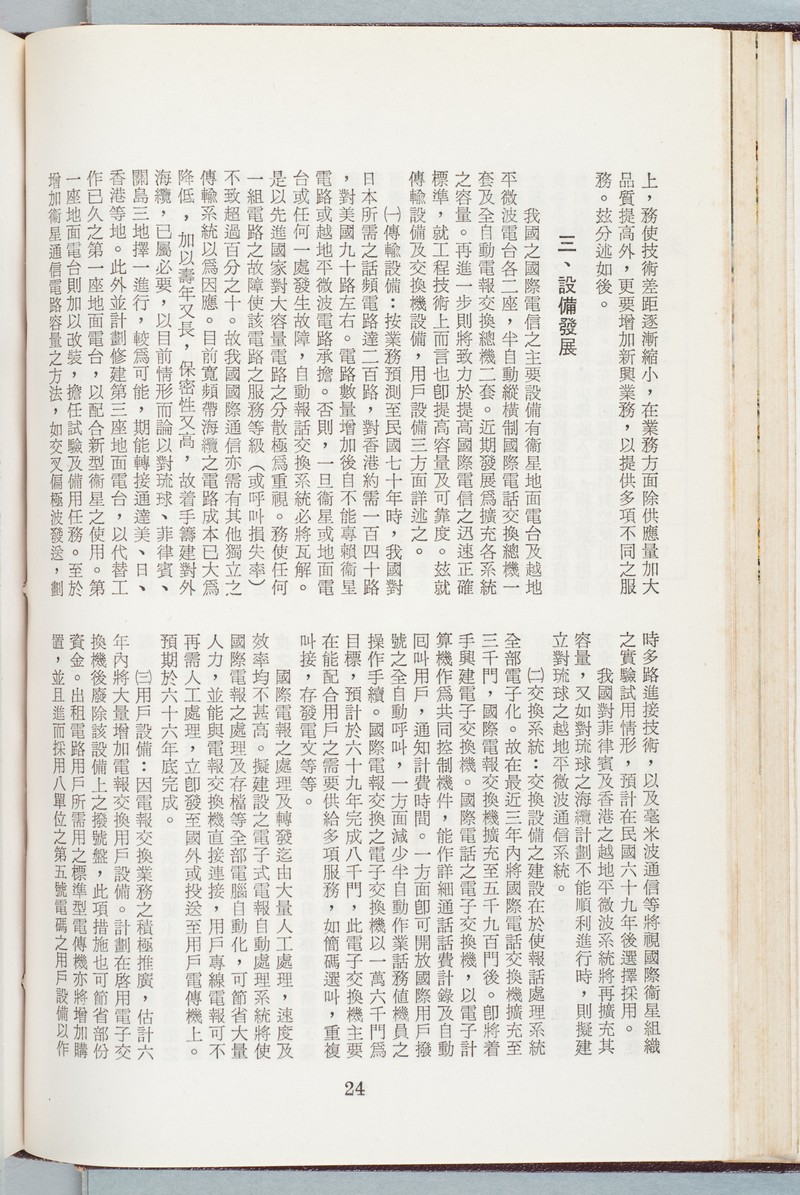 上，務使技術差距逐漸縮小，在業務方面除供應量加大
品質提高外，更要增加新興業務，以提供多項不同之服
務。玆分述如後。
三、設備發展
我國之國際電信之主要設備有衞星地面電台及越地
平微波電台各二座，半自動縱橫制國際電話交換總機一
套及全自動電報交換總機二套。近期發展爲擴充各系統
之容量。再進一步則將致力於提高國際電信之迅速正確
標準，就工程技術上而言也卽提高容量及可靠度。玆就
傳輸設備及交換機設備，用戶設備三方面詳述之。
㈠傳輸設備：按業務預測至民國七十年時，我國對
日本所需之話頻電路達二百路，對香港約需一百四十路
，對美國九十路左右。電路數量增加後自不能專賴衞星
電路或越地平微波電路承擔。否則，一旦衞星或地面電
台或任何一處發生故障，自動報話交換系統必將瓦解。
是以先進國家對大容量電路之分散極爲重視。務使任何
一組電路之故障使該電路之服務等級（或呼叫損失率）
不致超過百分之十。故我國國際通信亦需有其他獨立之
傳輸系統以爲因應。目前寬頻帶海纜之電路成本已大爲
降低，加以壽年又長，保密性又高，故着手籌建對外
海纜，已屬必要，以目前情形而論以對琉球、菲律賓、
關島三地擇一進行，較爲可能，期能轉接通達美、日、
香港等地。此外並計劃修建第三座地面電台，以代替工
作已久之第一座地面電台，以配合新型衞星之使用。第
一座地面電台則加以改裝，擔任試驗及備用任務。至於
增加衞星通信電路容量之方法，如交叉偏極波發送，劃
時多路進接技術，以及毫米波通信等將視國際衞星組織
之實驗試用情形，預計在民國六十九年後選擇採用。
我國對菲律賓及香港之越地平微波系統將再擴充其
容量，又如對琉球之海纜計劃不能順利進行時，則擬建
立對琉球之越地平微波通信系統。
㈡交換系統：交換設備之建設在於使報話處理系統
全部電子化。故在最近三年內將國際電話交換機擴充至
三千門，國際電報交換機擴充至五千九百門後。卽將着
手興建電子交換機。國際電話之電子交換機，以電子計
算機作爲共同控制機件，能作詳細通話話費計錄及自動
囘叫用戶，通知計費時間。一方面卽可開放國際用戶撥
號之全自動呼叫，一方面減少半自動作業話務值機員之
操作手續。國際電報交換之電子交換機以一萬六千門爲
目標，預計於六十九年完成八千門，此電子交換機主要
在能配合用戶之需要供給多項服務，如簡碼選叫，重複
叫接，存發電文等等。
國際電報之處理及轉發迄由大量人工處理，速度及
效率均不甚高。擬建設之電子式電報自動處理系統將使
國際電報之處理及存檔等全部電腦自動化，可節省大量
人力，並能與電報交換機直接連接，用戶專線電報可不
再需人工處理，立卽發至國外或投送至用戶電傳機上。
預期於六十六年底完成。
㈢用戶設備：因電報交換業務之積極推廣，估計六
年內將大量增加電報交換用戶設備。計劃在啓用電子交
換機後廢除該設備上之撥號盤，此項措施也可節省部份
資金。出租電路用戶所需用之標準型電傳機亦將增加購
置，並且進而採用八單位之第五號電碼之用戶設備以作
24